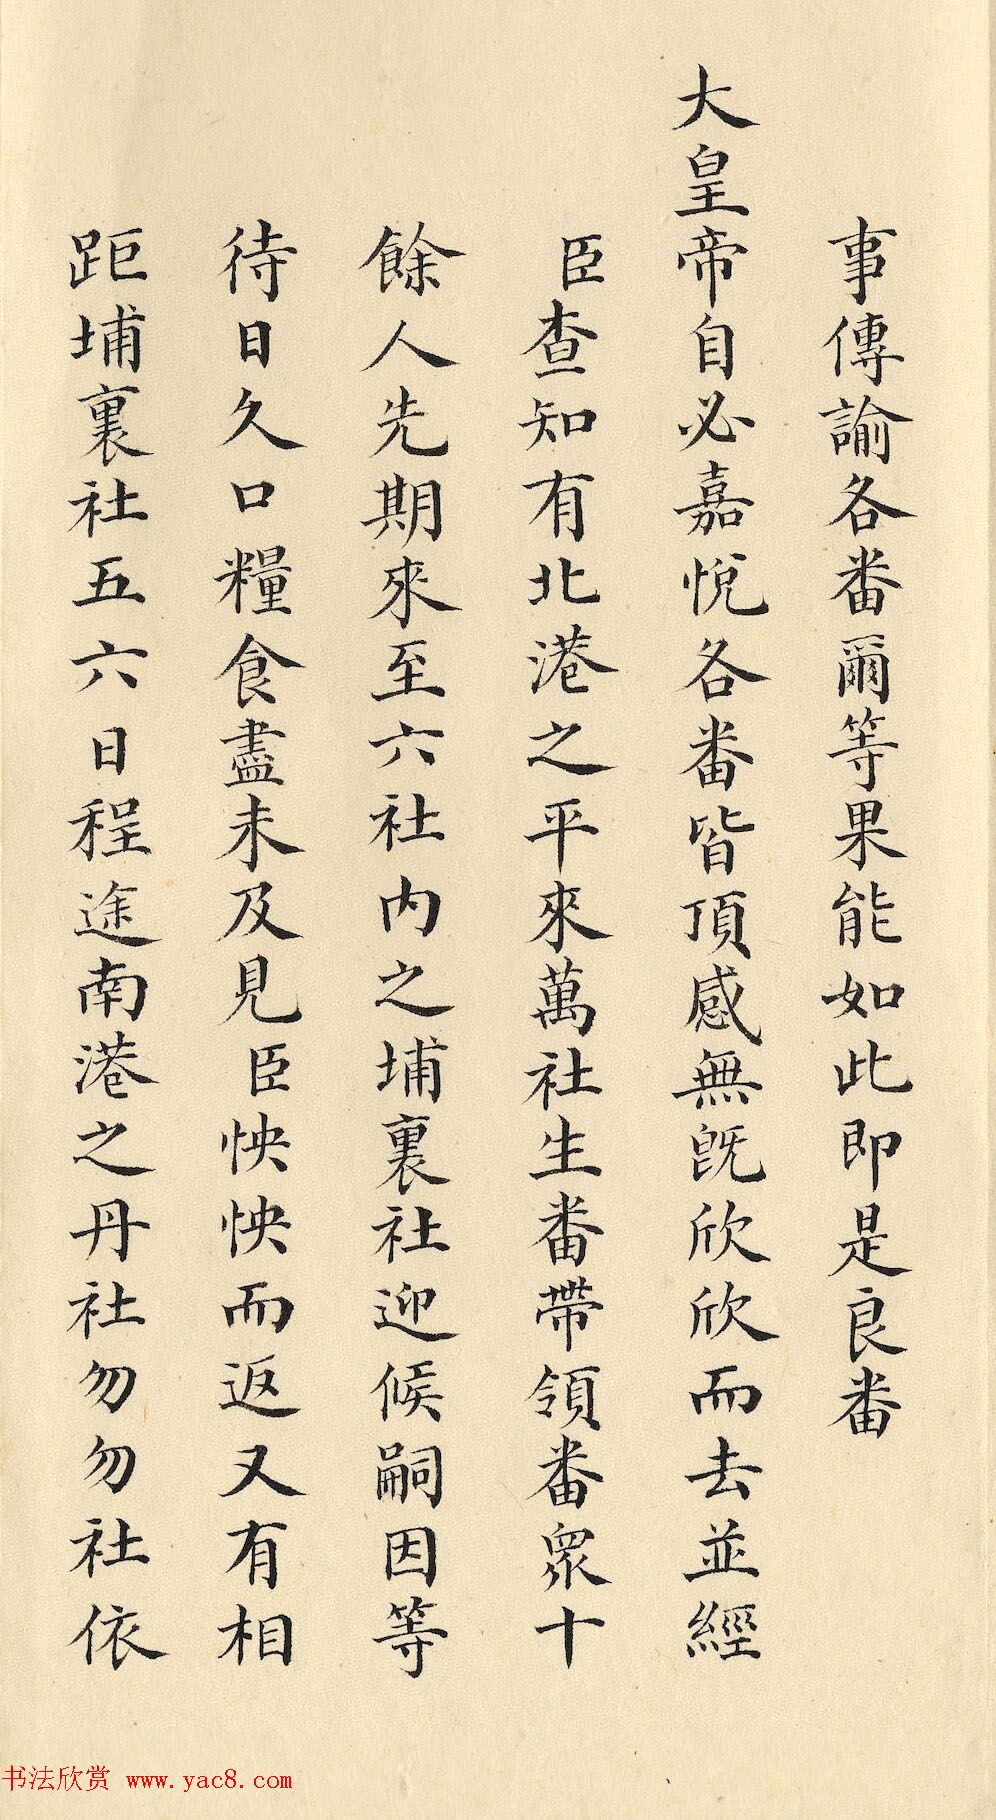 事傳諭各番爾等果能如此即是良番
大皇帝自必嘉悅各番皆頂感無既欣欣而去並經
臣查知有北港之平來萬社生番帶領番眾十
餘人先期來至六社內之埔裏社迎候嗣因等
待日久口糧食盡未及見臣怏怏而返又有相
距埔裏社五六日程途南港之丹社勿勿社依
书法欣赏 www.yac8.com